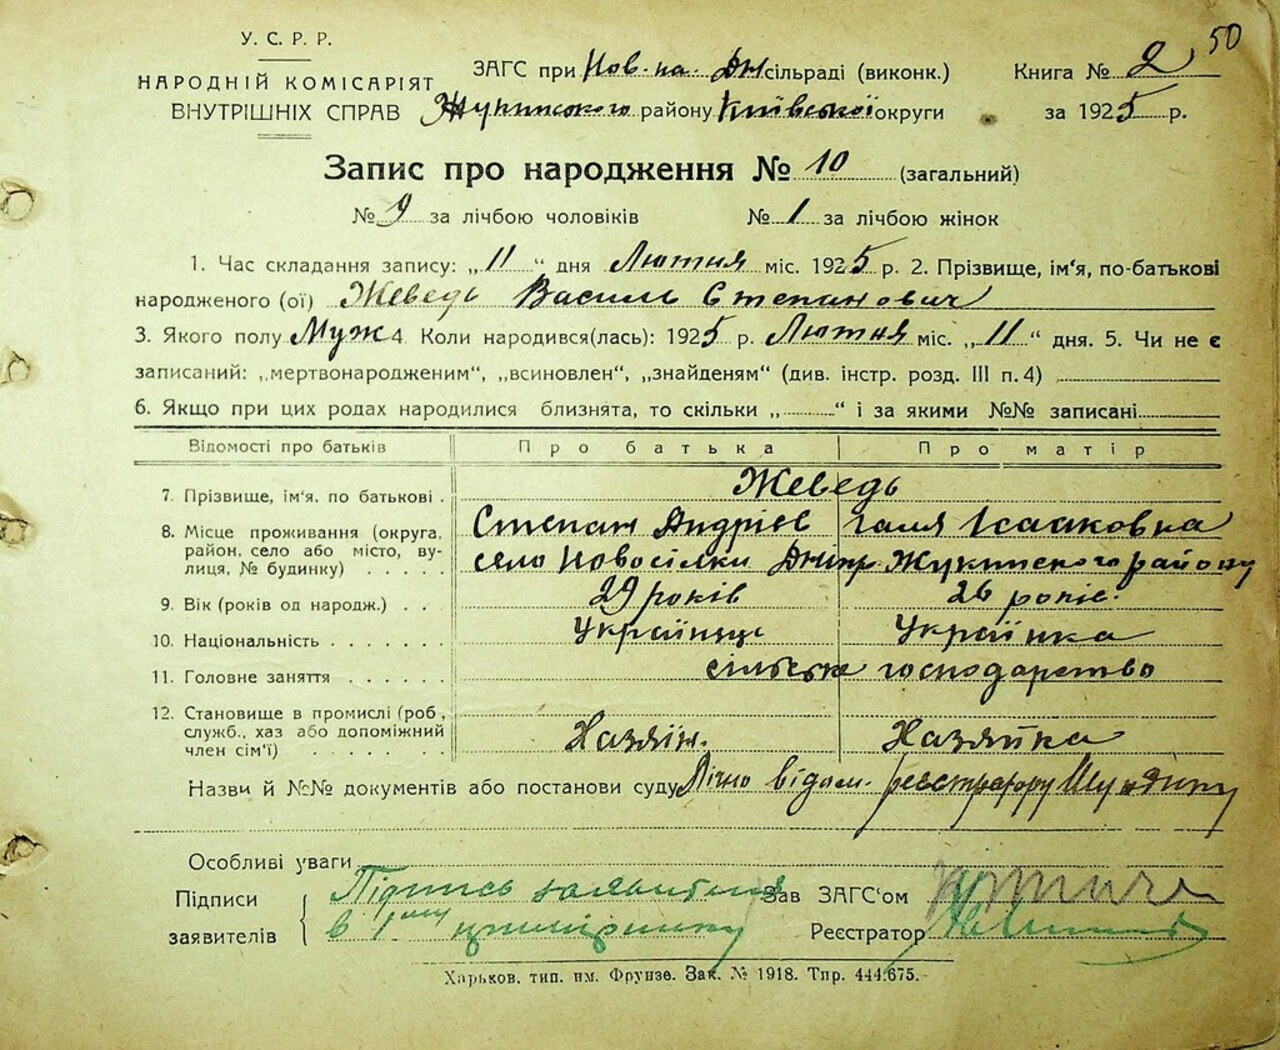 50
У. С. Р. Р.
НАРОДНІЙ КОМІСАРІЯТ
ВНУТРІШНІХ СПРАВ
ЗАГС при Нов-ка. Дн сільраді (виконк.)
Жукинського району Київської округи
Книга № 2
за 1925 р.
Запис про народження № 10 (загальний)
№ 9 за лічбою чоловіків № 1 за лічбою жінок
1. Час складання запису: „11“ дня Лютня міс. 1925 р. 2. Прізвище, ім'я, по-батькові
народженого (ої) Жеведь Василь Степанович
3. Якого полу Муж 4. Коли народився(лась): 1925 р. Лютня міс. „11“ дня. 5. Чи не є
записаний: „мертвонародженим“, „всиновлен“, „знайденям“ (див. інстр. розд. III п. 4)
6. Якщо при цих родах народилися близнята, то скільки „ “ і за якими №№ записані
Відомості про батьків Про батька Про матір
7. Прізвище, ім'я, по батькові . Жеведь
Степан Андріев Галя Ісааковна
8. Місце проживання (округа, район, село або місто, ву-
лиця, № будинку) . . . . . село Новосілки Днипр. Жукинского району
9. Вік (років од народж.) . . 29 років 26 років.
10. Національність . . . . . . . Українець Українка
11. Головне заняття . . . . . сільське господарство
12. Становище в промислі (роб., служб., хаз або допоміжний
член сім'ї) . . . . . . Хазяїн. Хазяйка
Назви й №№ документів або постанови суду Лічно відом. реєстратору
Особливі уваги
Підписи
заявителів
Підпись заявителя
в 1му
Зав ЗАГС'ом
Реєстратор
Харьков. тип. им. Фрунзе. Зак. № 1918. Тпр. 444.675.